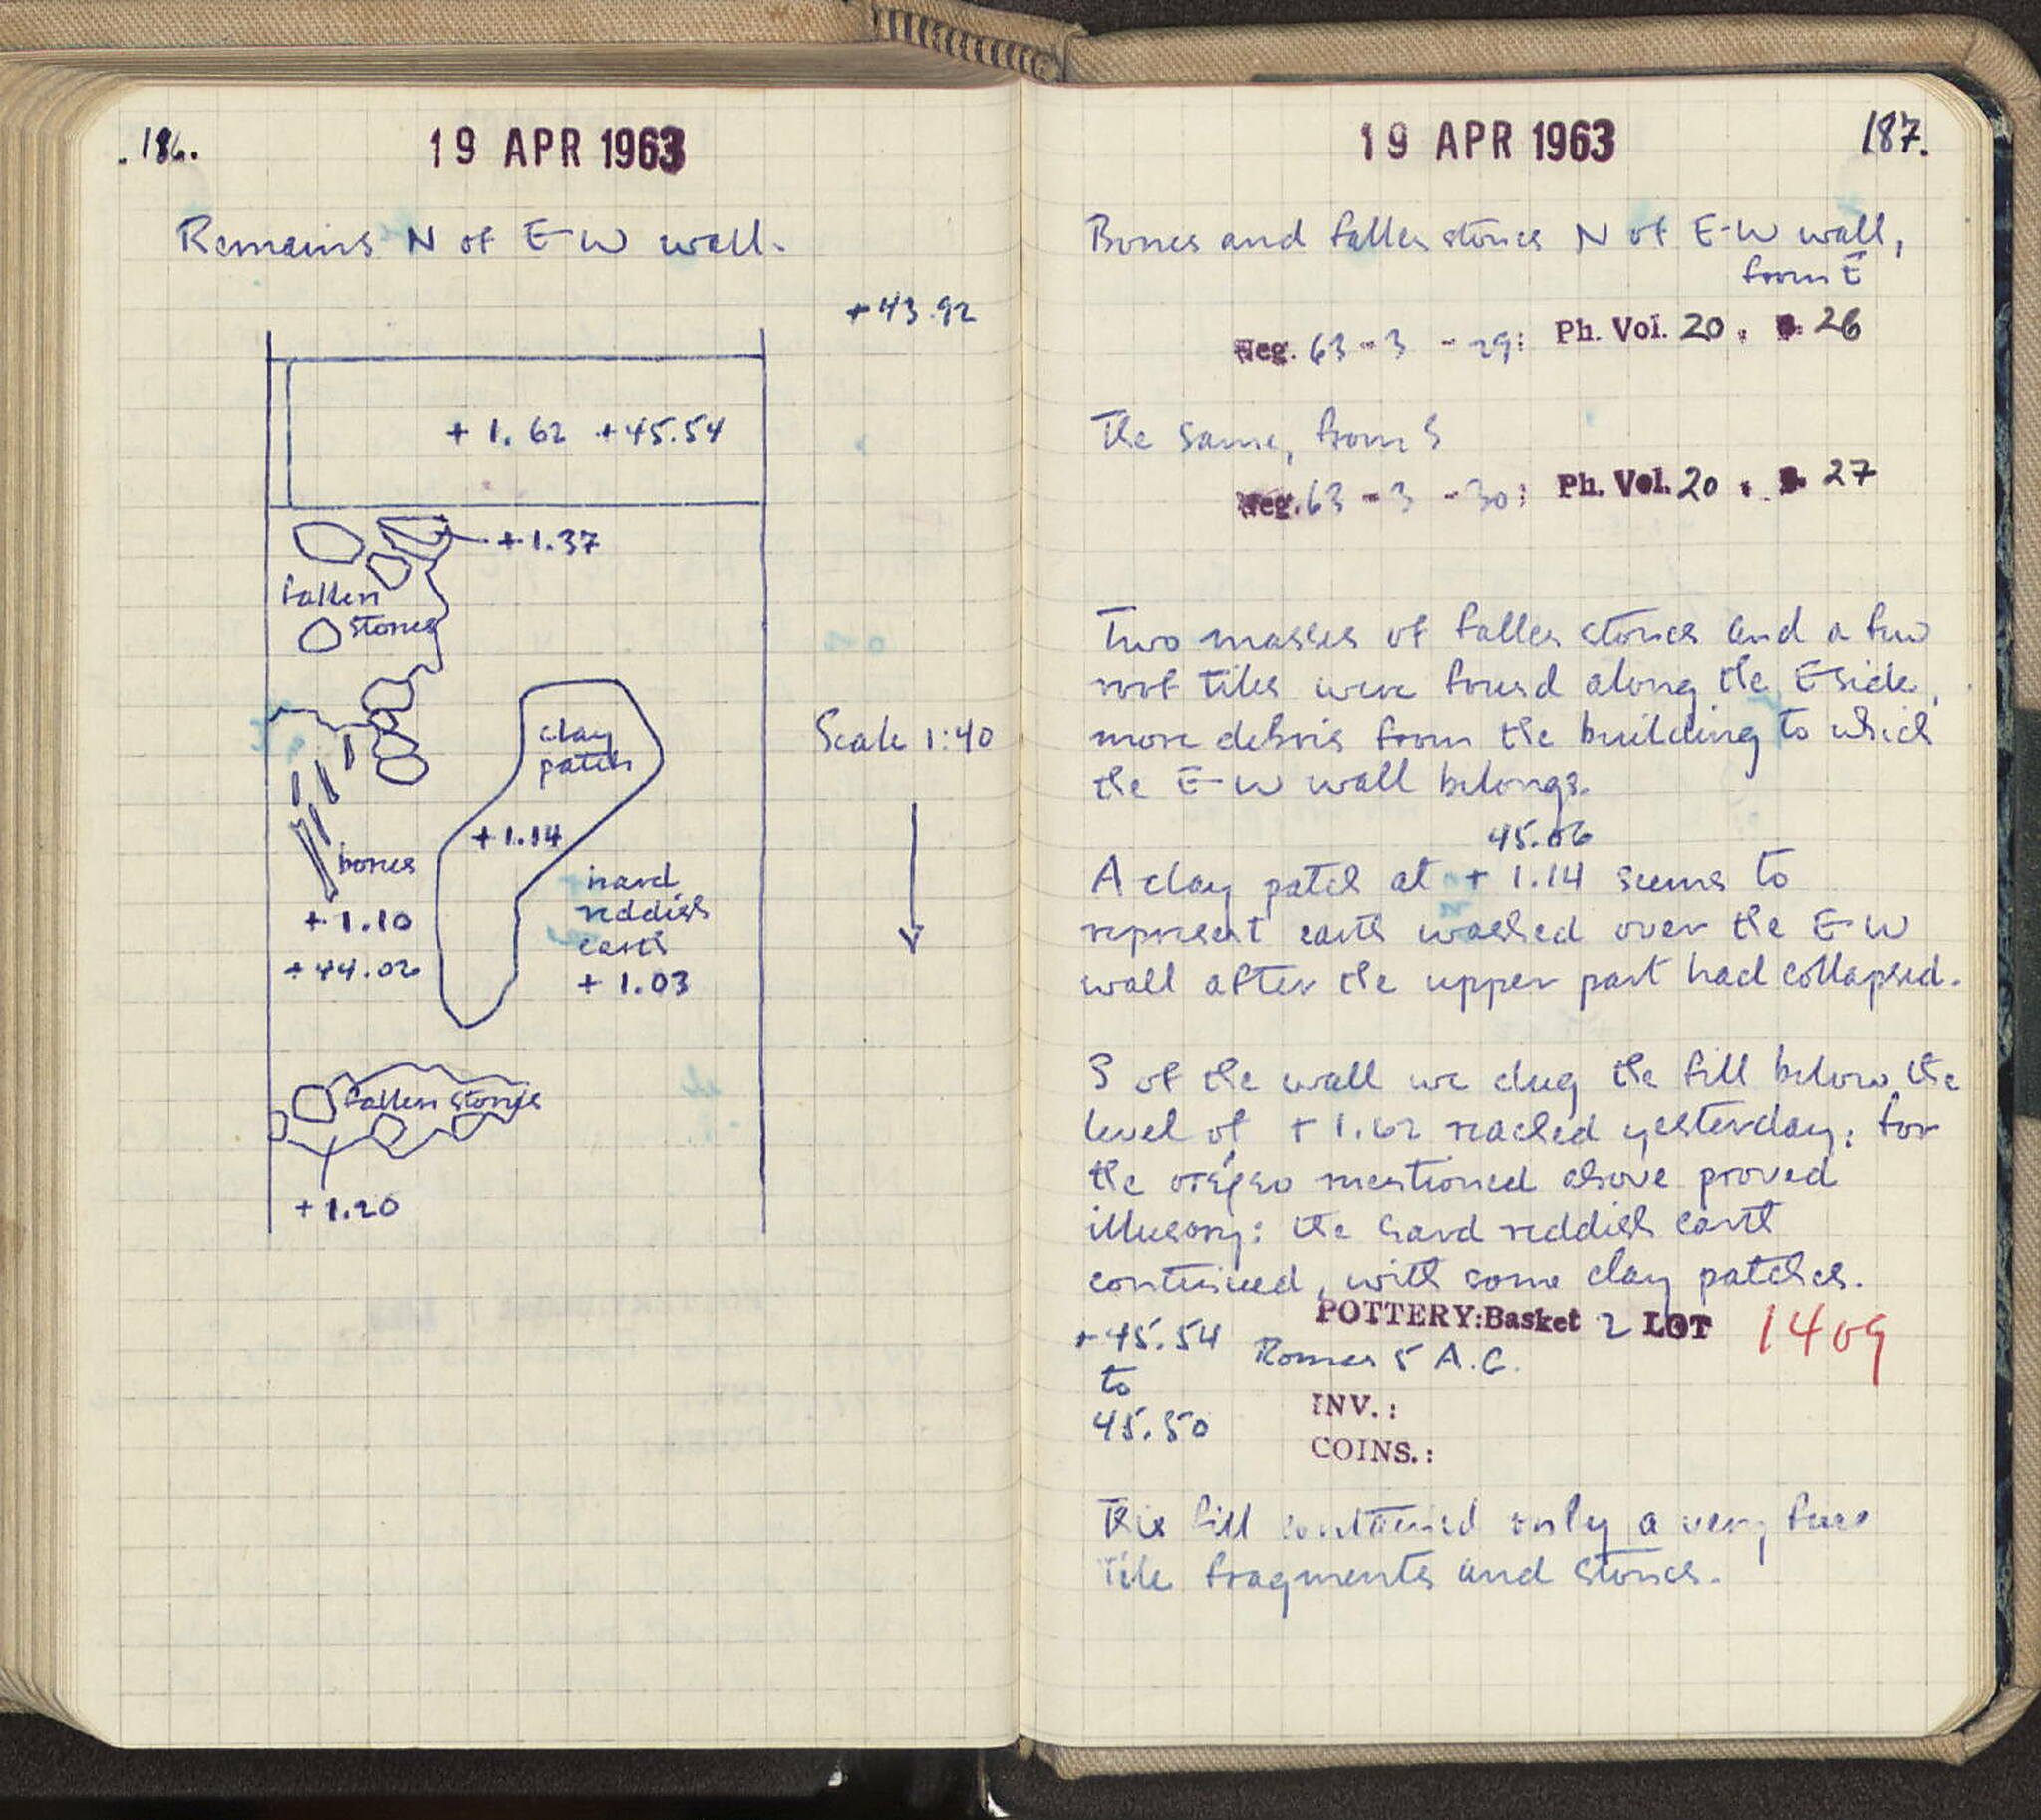 186.
19 APR 1963
Remains N of E-W wall.
+43.92
+1.62 +45.54
+1.37
fallen
stones
clay
patch
Scale 1:40
+1.14
bones
hard
reddish
earth
+1.10
+44.02
+1.03
fallen stones
+1.20
19 APR 1963
187.
Bones and fallen stones N of E-W wall,
from E
Neg. 63-3-29; Ph. Vol. 20, p. 26
The same, from S
Neg. 63-3-30; Ph. Vol. 20, p. 27
Two masses of fallen stones and a few
roof tiles were found along the E side,
more debris from the building to which
the E-W wall belongs.
45.06
A clay patch at +1.14 seems to
represent earth washed over the E-W
wall after the upper part had collapsed.
S of the wall we dug the fill below the
level of +1.62 reached yesterday; for
the στέρεο mentioned above proved
illusory: the hard reddish earth
continued, with some clay patches.
POTTERY: Basket 2 LOT 1409
+45.54 Roman 5 A.C.
to
45.50
INV.:
COINS.:
This fill contained only a very few
tile fragments and stones.